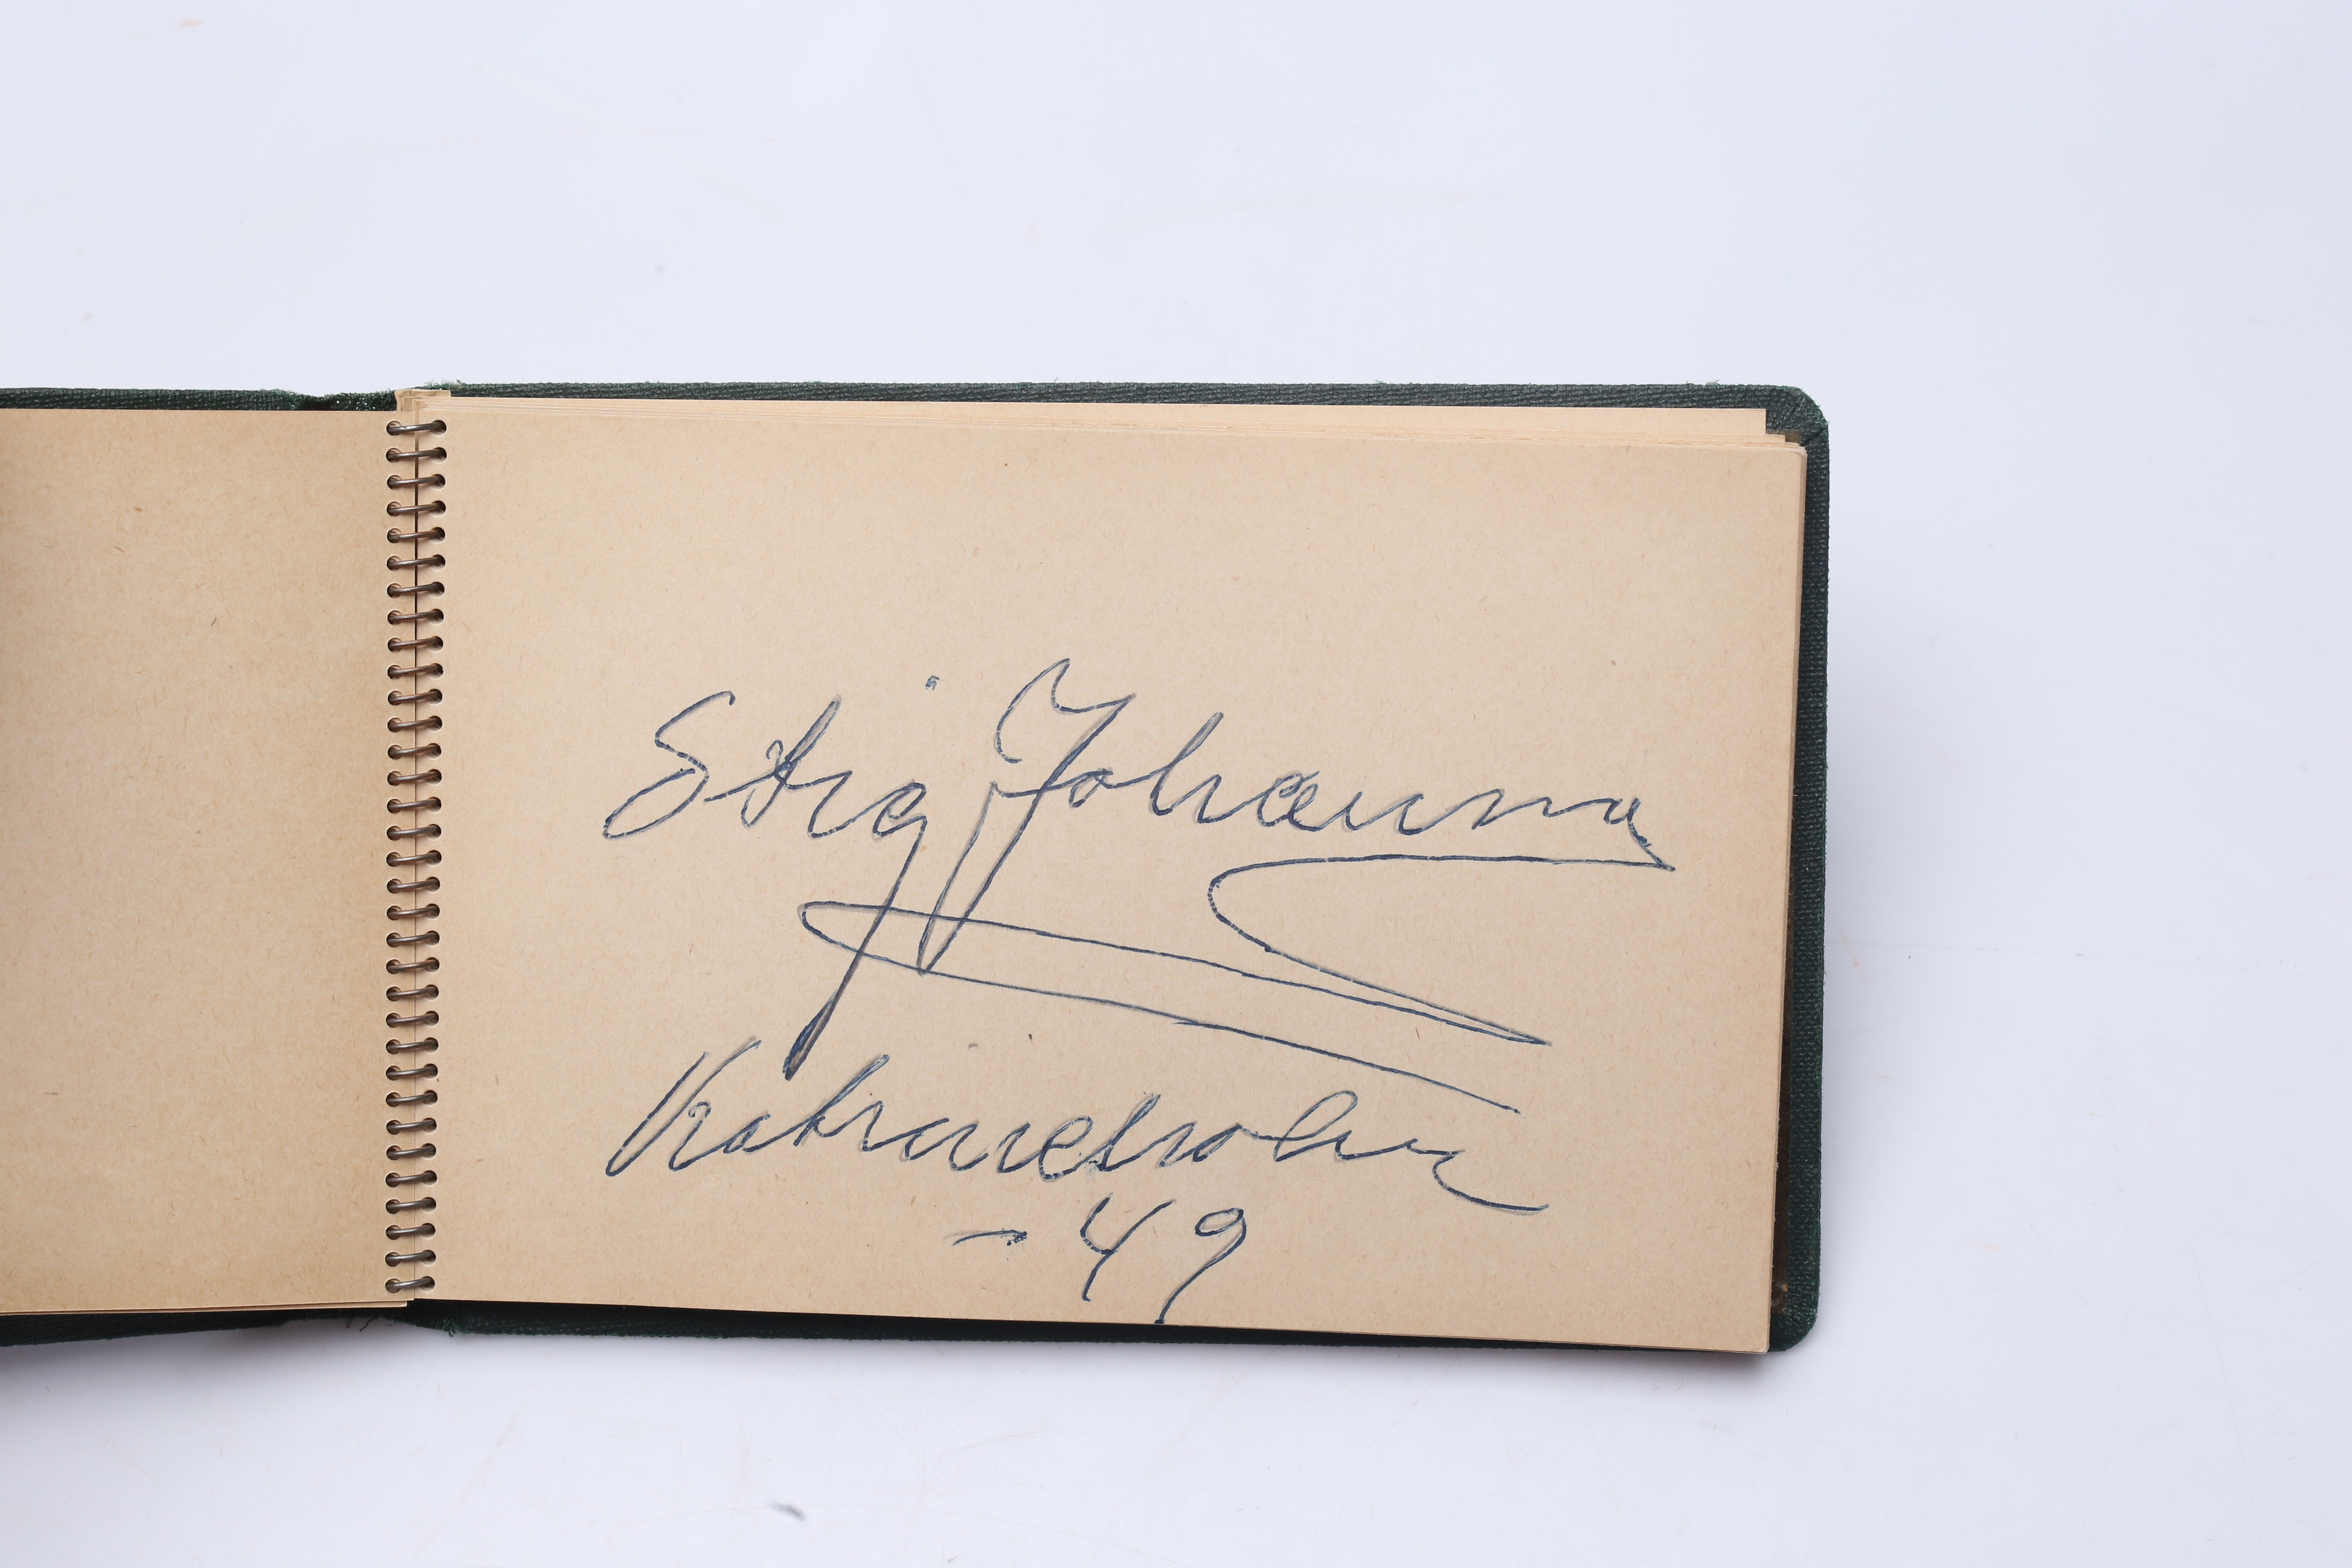 Stig Johanna
Katrineholm
- 49